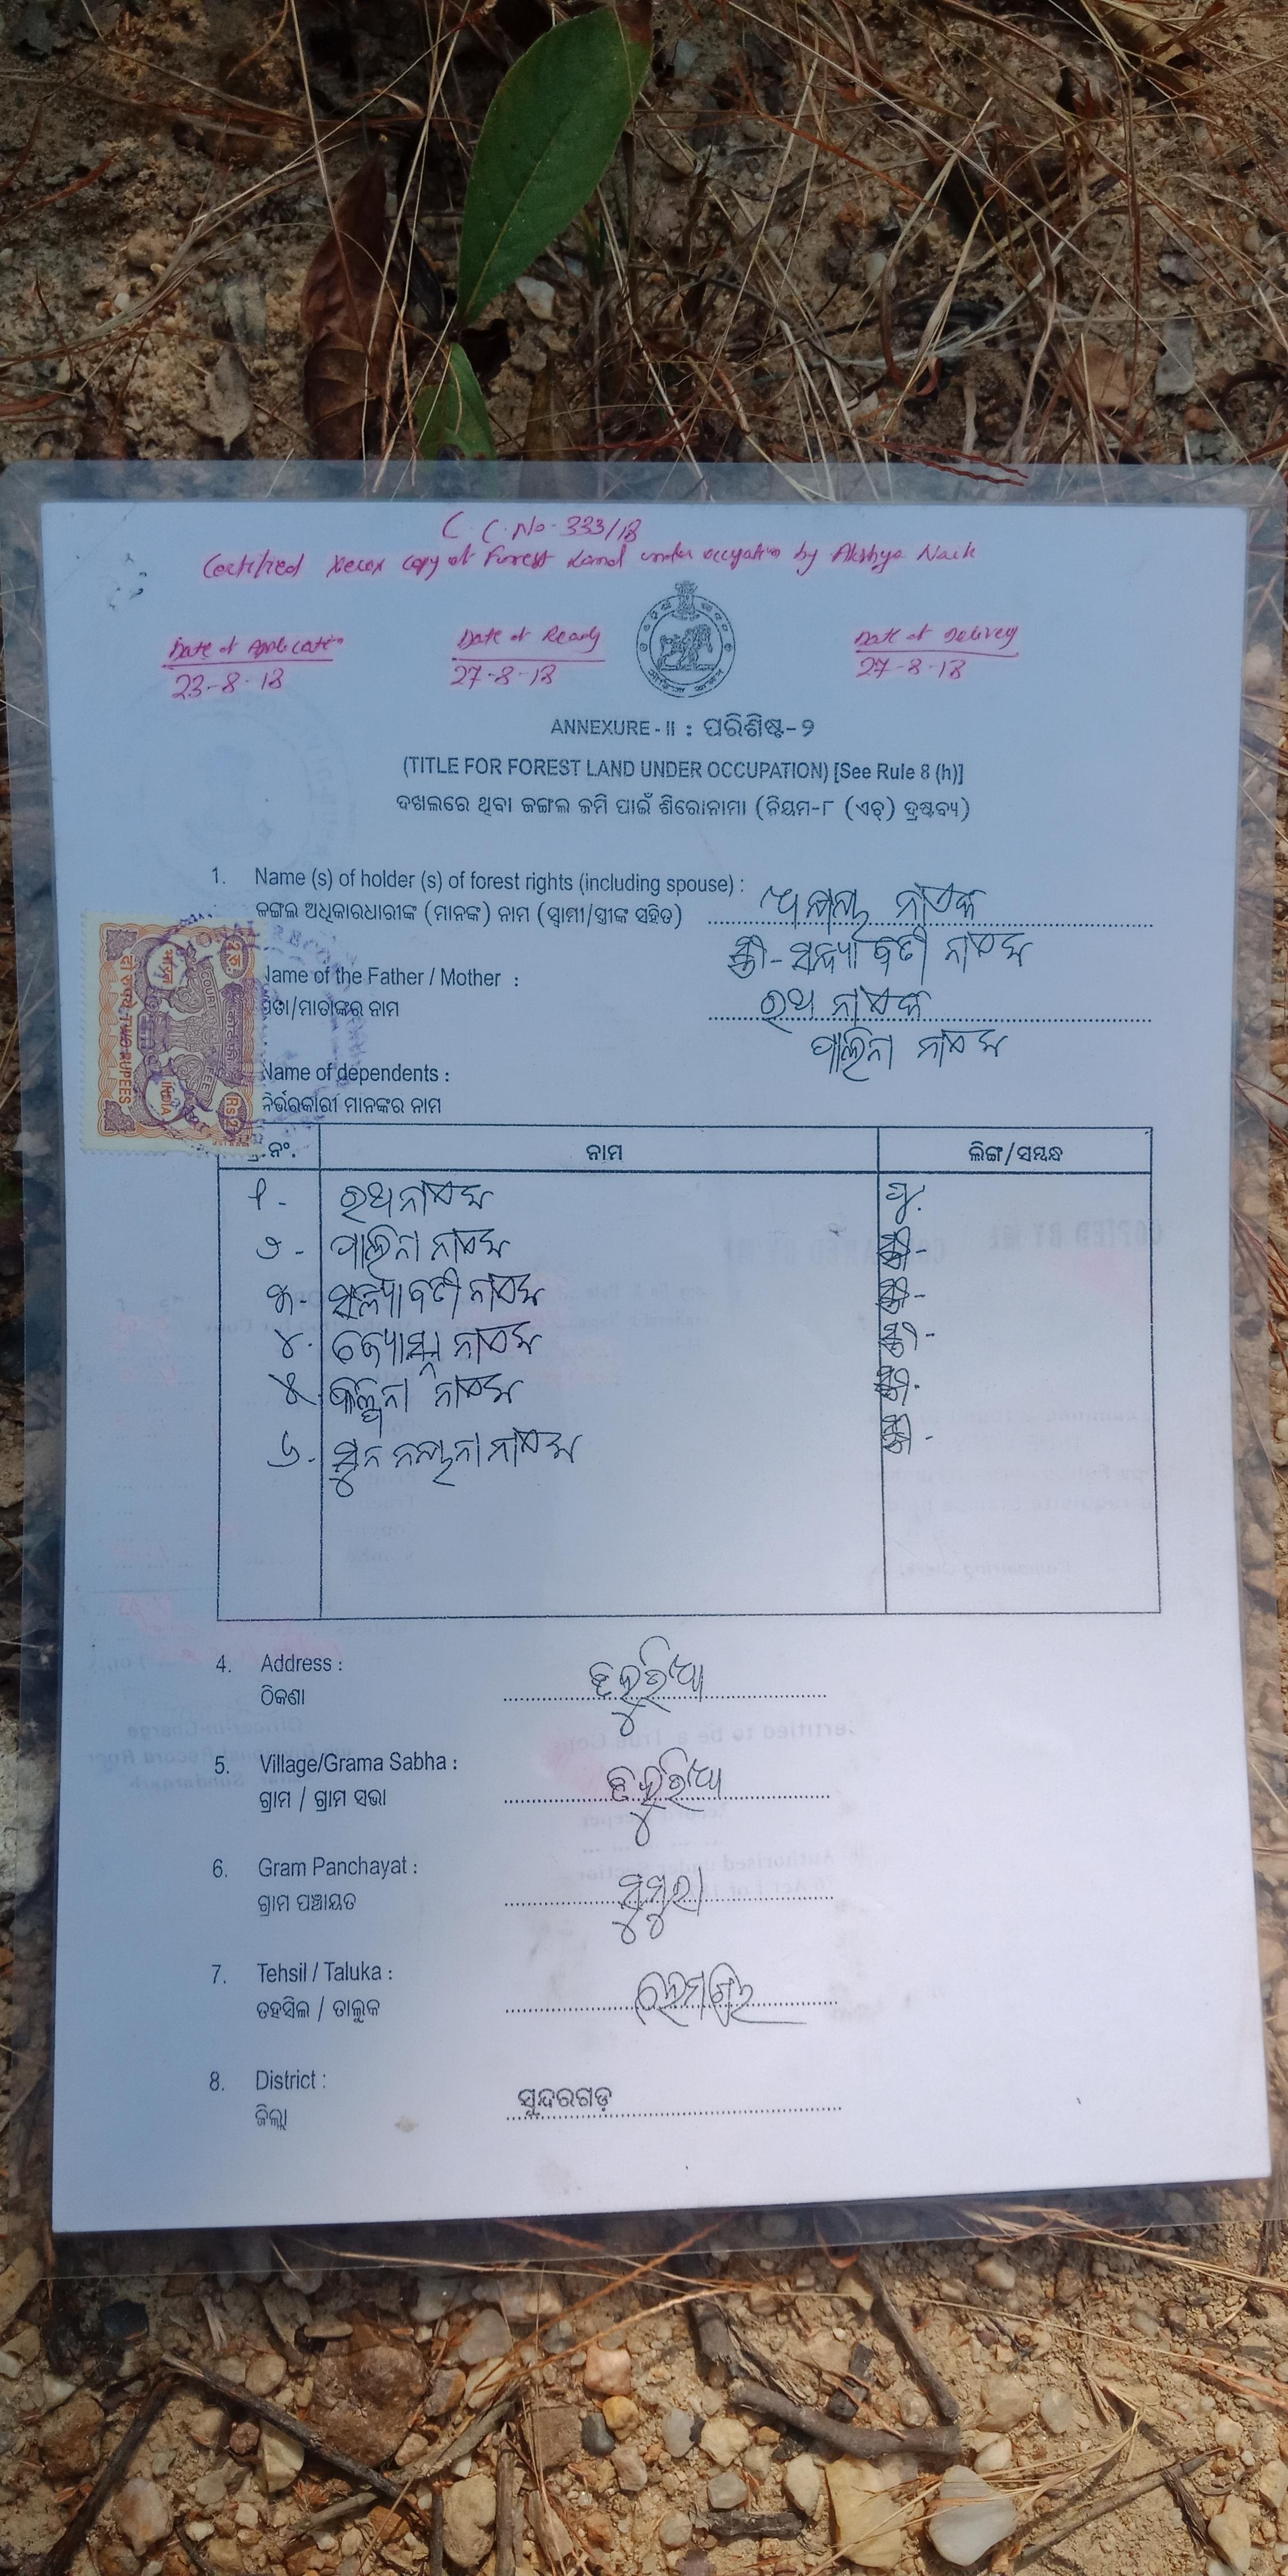 C.C.No-333/18
Certified Xerox copy of Forest Land under occupation by Akshya Naik
Date of Application
23-8-18
Date of Ready
27-8-18
Date of Delivery
27-8-18
ANNEXURE - II : ପରିଶିଷ୍ଟ-୨
(TITLE FOR FOREST LAND UNDER OCCUPATION) [See Rule 8 (h)]
ଦଖଲରେ ଥିବା ଜଙ୍ଗଲ ଜମି ପାଇଁ ଶିରୋନାମା (ନିୟମ-୮ (ଏଚ୍) ଦ୍ରଷ୍ଟବ୍ୟ)
1. Name (s) of holder (s) of forest rights (including spouse) :
ଜଙ୍ଗଲ ଅଧିକାରଧାରୀଙ୍କ (ମାନଙ୍କ) ନାମ (ସ୍ୱାମୀ/ସ୍ତ୍ରୀଙ୍କ ସହିତ) ନାଏକ
ସ୍ତ୍ରୀ- ସନ୍ଧ୍ୟା ବତୀ ନାଏକ
Name of the Father / Mother :
ପିତା/ମାତାଙ୍କର ନାମ ରଥ ନାଏକ
ପାଲିନା ନାଏକ
Name of dependents :
ନିର୍ଭରକାରୀ ମାନଙ୍କର ନାମ
କ୍ର.ନଂ. ନାମ ଲିଙ୍ଗ/ସମ୍ବନ୍ଧ
୧- ରଥ ନାଏକ ପୁ.
୨- ପାଲିନା ନାଏକ ସ୍ତ୍ରୀ-
୩- ସନ୍ଧ୍ୟା ବତୀ ନାଏକ ସ୍ତ୍ରୀ-
୪- ଜ୍ୟୋସ୍ନା ନାଏକ ସ୍ତ୍ରୀ-
୫- କଳ୍ପନା ନାଏକ ସ୍ତ୍ରୀ-
୬- ସୁନ ନାଏକ ସ୍ତ୍ରୀ-
4. Address :
ଠିକଣା
5. Village/Grama Sabha :
ଗ୍ରାମ / ଗ୍ରାମ ସଭା
6. Gram Panchayat :
ଗ୍ରାମ ପଞ୍ଚାୟତ ସୁମୁରା
7. Tehsil / Taluka :
ତହସିଲ / ତାଲୁକ ହେମଗିର
8. District :
ଜିଲ୍ଲା ସୁନ୍ଦରଗଡ଼
भारत INDIA
COURT FEE
दो रुपये TWO RUPEES
Rs 2